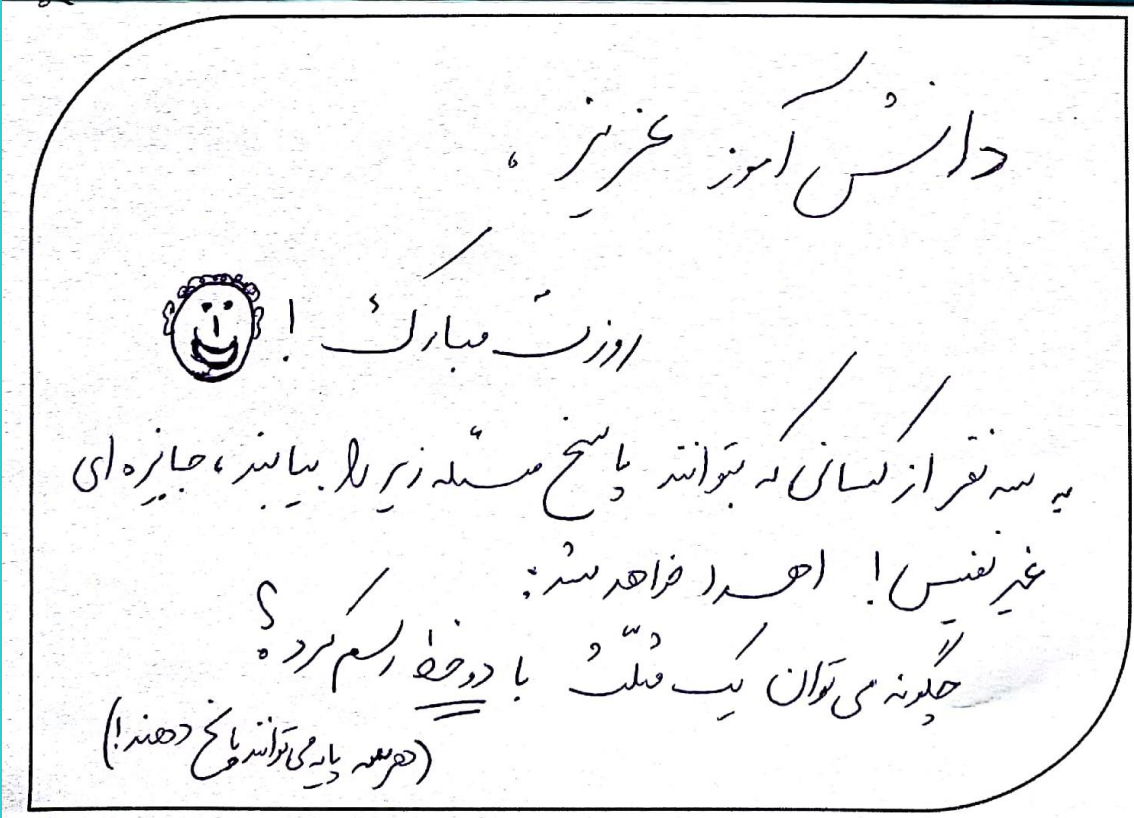 دانش آموز عزیز ،
روزت مبارک !
به سه نفر از کسانی که بتوانند پاسخ مسئله زیر را بیابند ، جایزه ای
غیر نفیس ! اهدا خواهد شد :
چگونه می توان یک مثلّث با دو خط رسم کرد ؟
(هر سه پایه می توانند پاسخ دهند !)